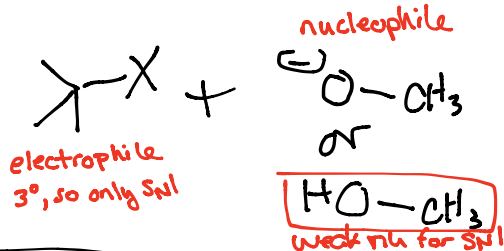 nucleophile
X + (-) O-CH3
or
electrophile
3°, so only SN1
HO-CH3
weak nu for SN1